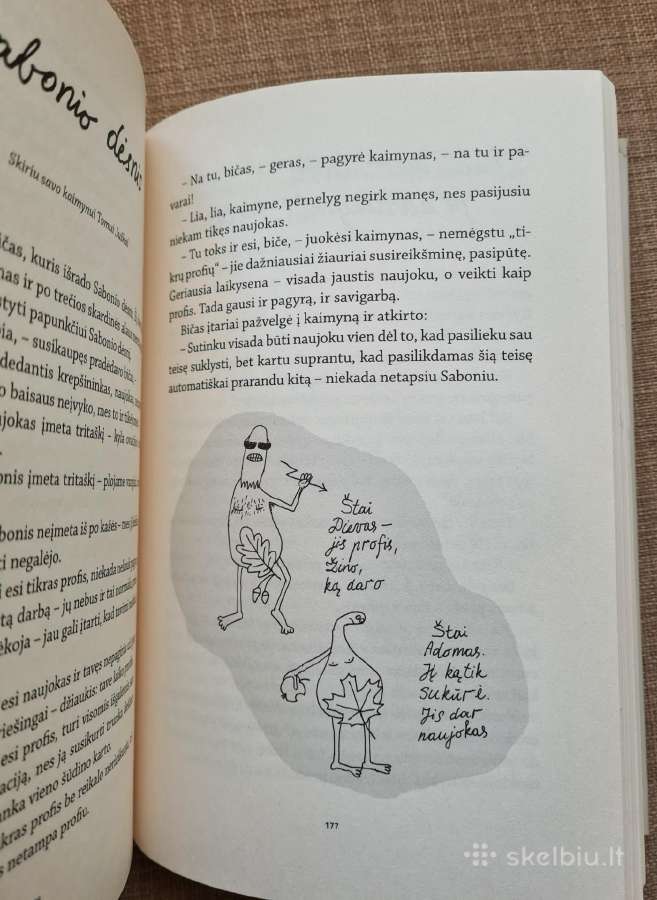 abonio dėsnis
Skiriu savo kaimynui Tomui
čas, kuris išrado Sabonio dėsnį,
nas ir po trečios skardinės alaus
styti papunkčiui Sabonio dėsnį.
bia, – susikaupęs pradėdavo bičas, –
dedantis krepšininkas, naujokas,
o baisaus neįvyko, mes to ir
ujokas įmeta tritaškį – kyla
onis įmeta tritaškį – plojame
bonis neįmeta iš po kašės –
ti negalėjo.
i esi tikras profis, niekada
tą darbą – jų nebus ir tai
ėkoja – jau gali įtarti, kad
esi naujokas ir tavęs
riešingai – džiaukis: tave
esi profis, turi visomis išgalėmis
aciją, nes ją susikurti trunka
nka vieno šūdino karto.
ikras profis be reikalo
s netampa profiu.
– Na tu, bičas, – geras, – pagyrė kaimynas, – na tu ir pa-
varai!
– Lia, lia, kaimyne, pernelyg negirk manęs, nes pasijusiu
niekam tikęs naujokas.
– Tu toks ir esi, biče, – juokėsi kaimynas, – nemėgstu „ti-
krų profių“ – jie dažniausiai žiauriai susireikšminę, pasipūtę.
Geriausia laikysena – visada jaustis naujoku, o veikti kaip
profis. Tada gausi ir pagyrą, ir savigarbą.
Bičas įtariai pažvelgė į kaimyną ir atkirto:
– Sutinku visada būti naujoku vien dėl to, kad pasilieku sau
teisę suklysti, bet kartu suprantu, kad pasilikdamas šią teisę
automatiškai prarandu kitą – niekada netapsiu Saboniu.
Štai
Dievas –
jis profis,
žino,
ką daro
Štai
Adomas.
Jį kątik
sukūrė.
Jis dar
naujokas
177
skelbiu.lt